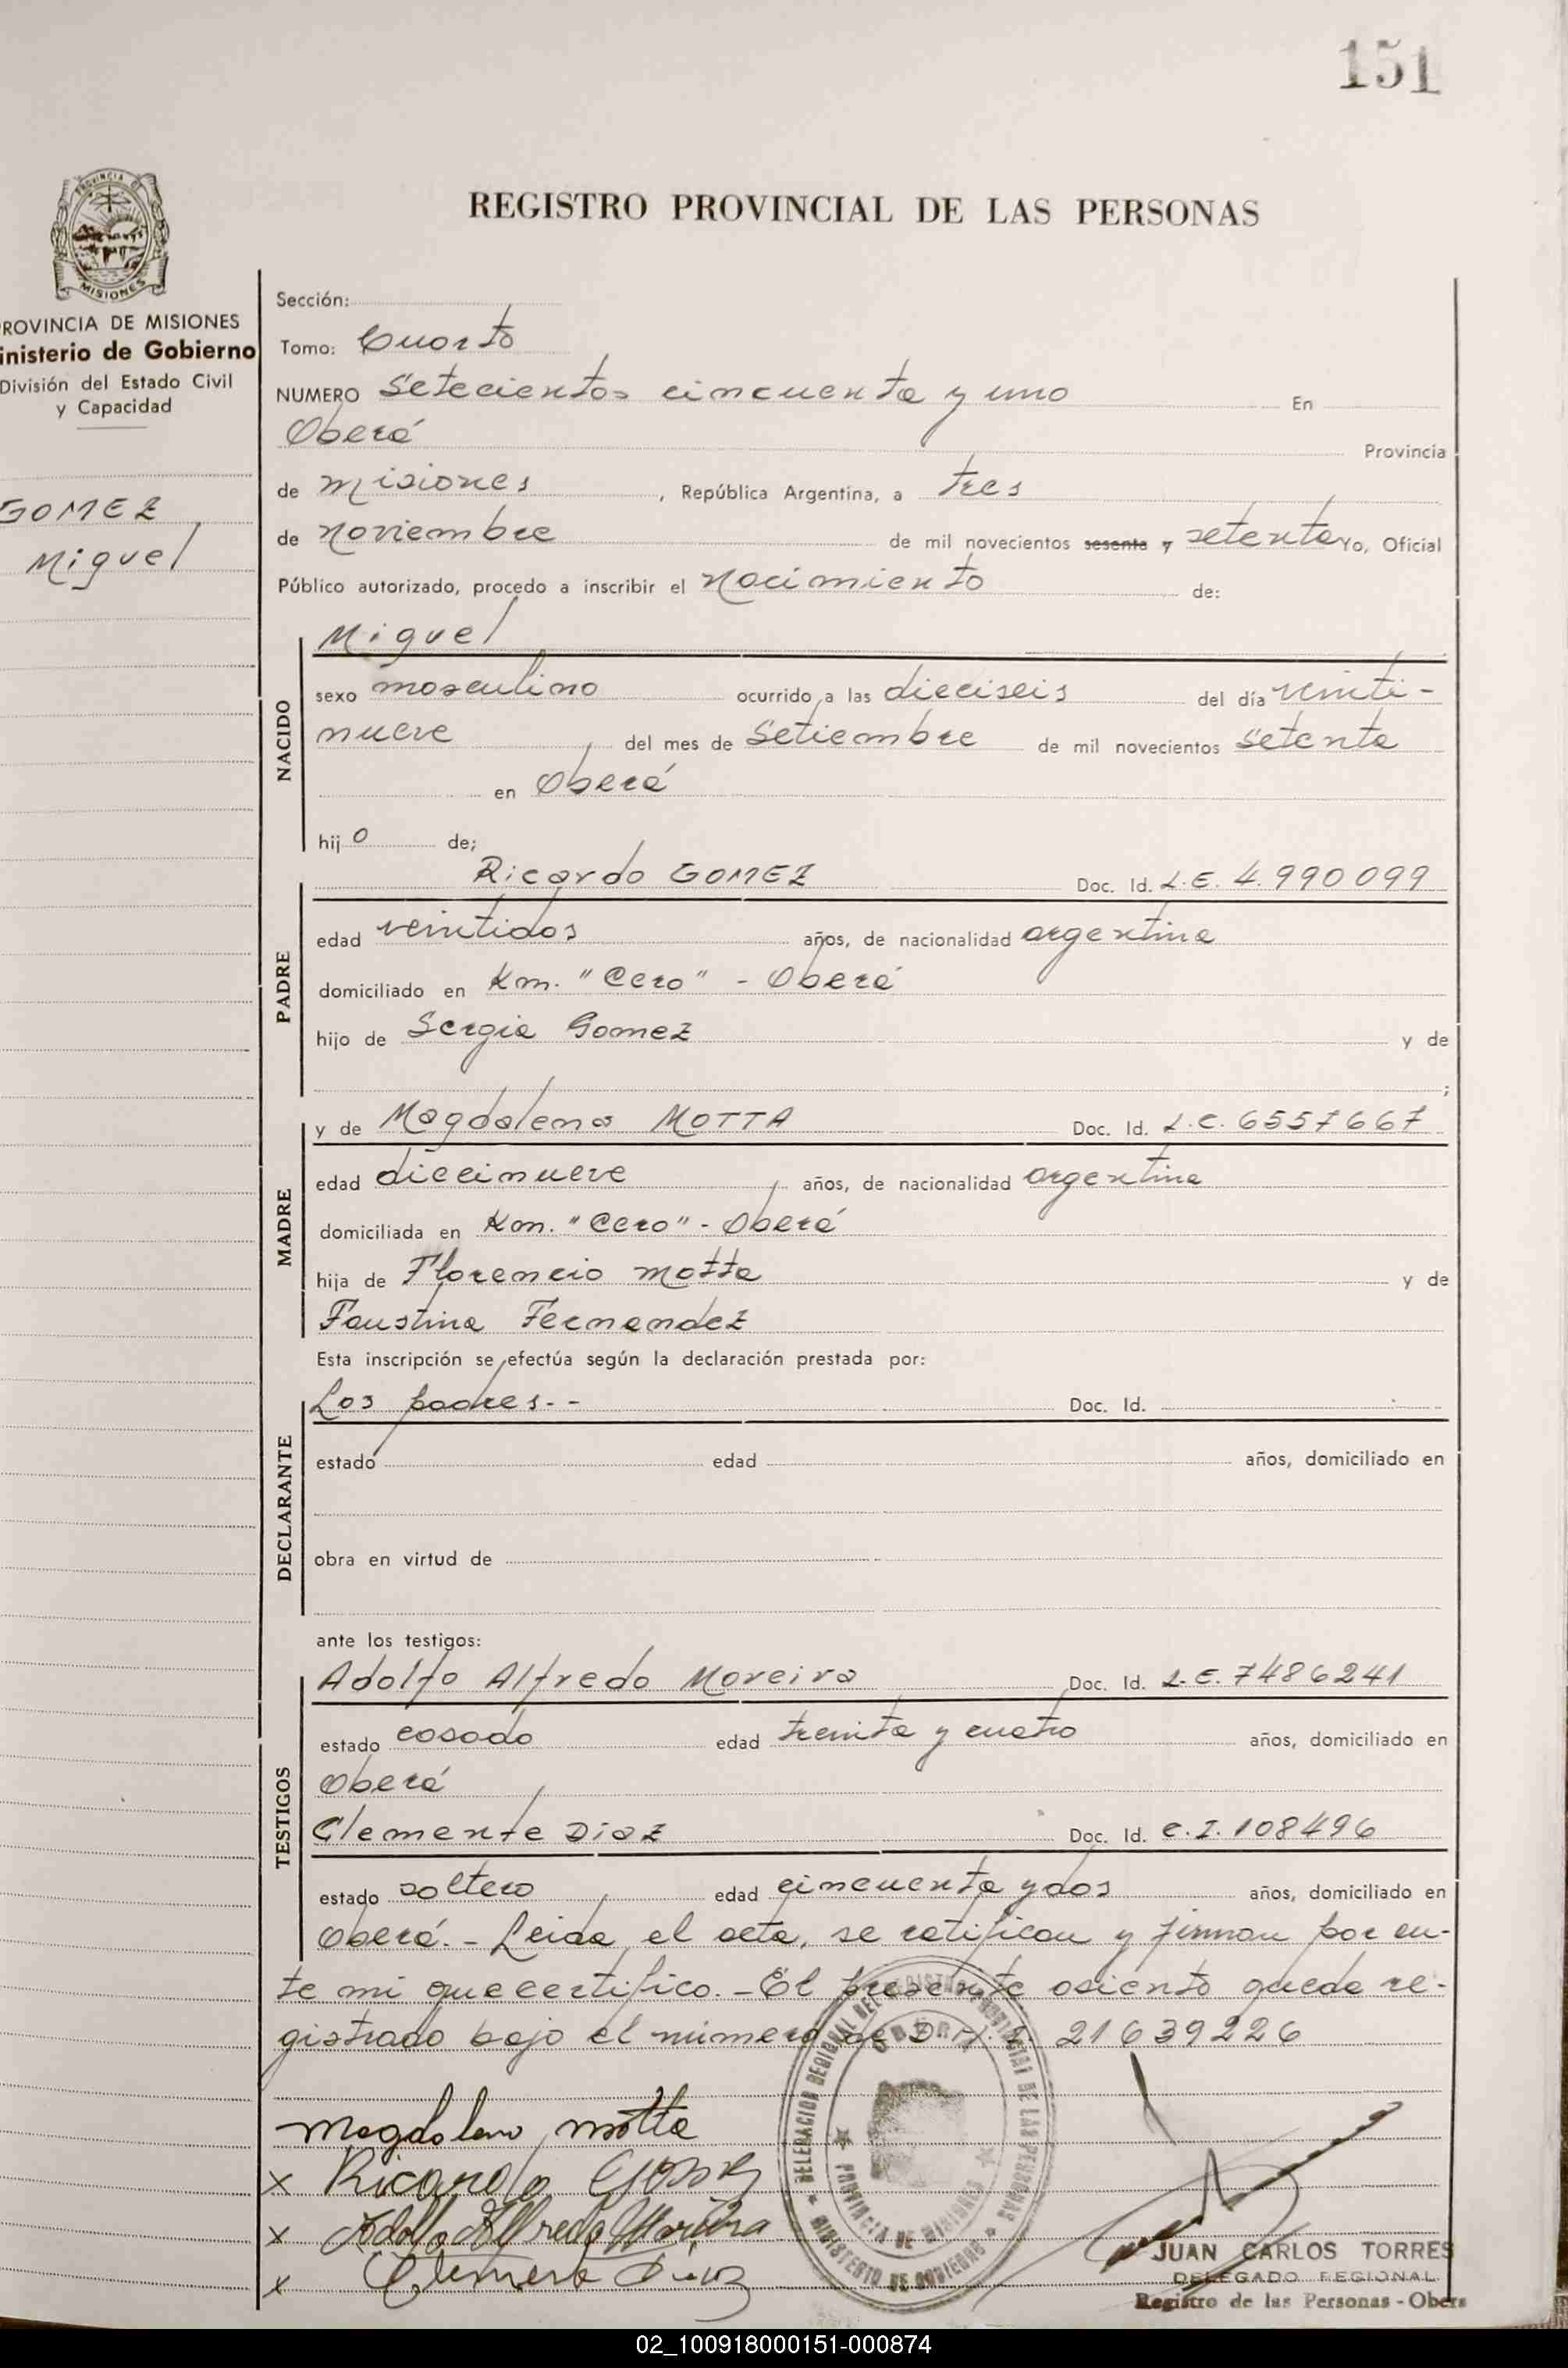 151
REGISTRO PROVINCIAL DE LAS PERSONAS
PROVINCIA DE MISIONES
ROVINCIA DE MISIONES
inisterio de Gobierno
División del Estado Civil
y Capacidad
GOMEZ
Miguel
Sección:
Tomo: Cuarto
NUMERO Setecientos cincuenta y uno En
Oberá Provincia
de Misiones, República Argentina, a tres
de Noviembre de mil novecientos sesenta y setenta Yo, Oficial
Público autorizado, procedo a inscribir el Nacimiento de:
NACIDO
Miguel
sexo masculino ocurrido a las dieciseis del día veinti-
nueve del mes de Setiembre de mil novecientos setenta
en Oberá
hijo de;
PADRE
Ricardo GOMEZ Doc. Id. L.E. 4.990099
edad veintidos años, de nacionalidad argentina
domiciliado en Km. "Cero" - Oberá
hijo de Sergia Gomez y de
;
MADRE
y de Magdalena MOTTA Doc. Id. L.C. 6557667
edad diecinueve años, de nacionalidad argentina
domiciliada en Km. "Cero" - Oberá
hija de Florencio Motta y de
Faustina Fernandez
Esta inscripción se efectúa según la declaración prestada por:
DECLARANTE
Los padres.-- Doc. Id.
estado edad años, domiciliado en
obra en virtud de
ante los testigos:
TESTIGOS
Adolfo Alfredo Moreira Doc. Id. L.E. 7486241
estado casado edad treinta y cuatro años, domiciliado en
Oberá
Clemente Diaz Doc. Id. C.I. 108496
estado soltero edad cincuenta y dos años, domiciliado en
Oberá.- Leida el acta, se ratifican y firman por an-
te mi que certifico.- El presente asiento queda re-
gistrado bajo el número de D.N.I. 21639226
Magdalena Motta
x Ricardo Gomez
x Adolfo Alfredo Moreira
x Clemente Diaz
DELEGACION REGIONAL DEL REGISTRO PROVINCIAL DE LAS PERSONAS
OBERA
PROVINCIA DE MISIONES
MINISTERIO DE GOBIERNO
JUAN CARLOS TORRES
DELEGADO REGIONAL
Registro de las Personas - Obera
02_100918000151-000874